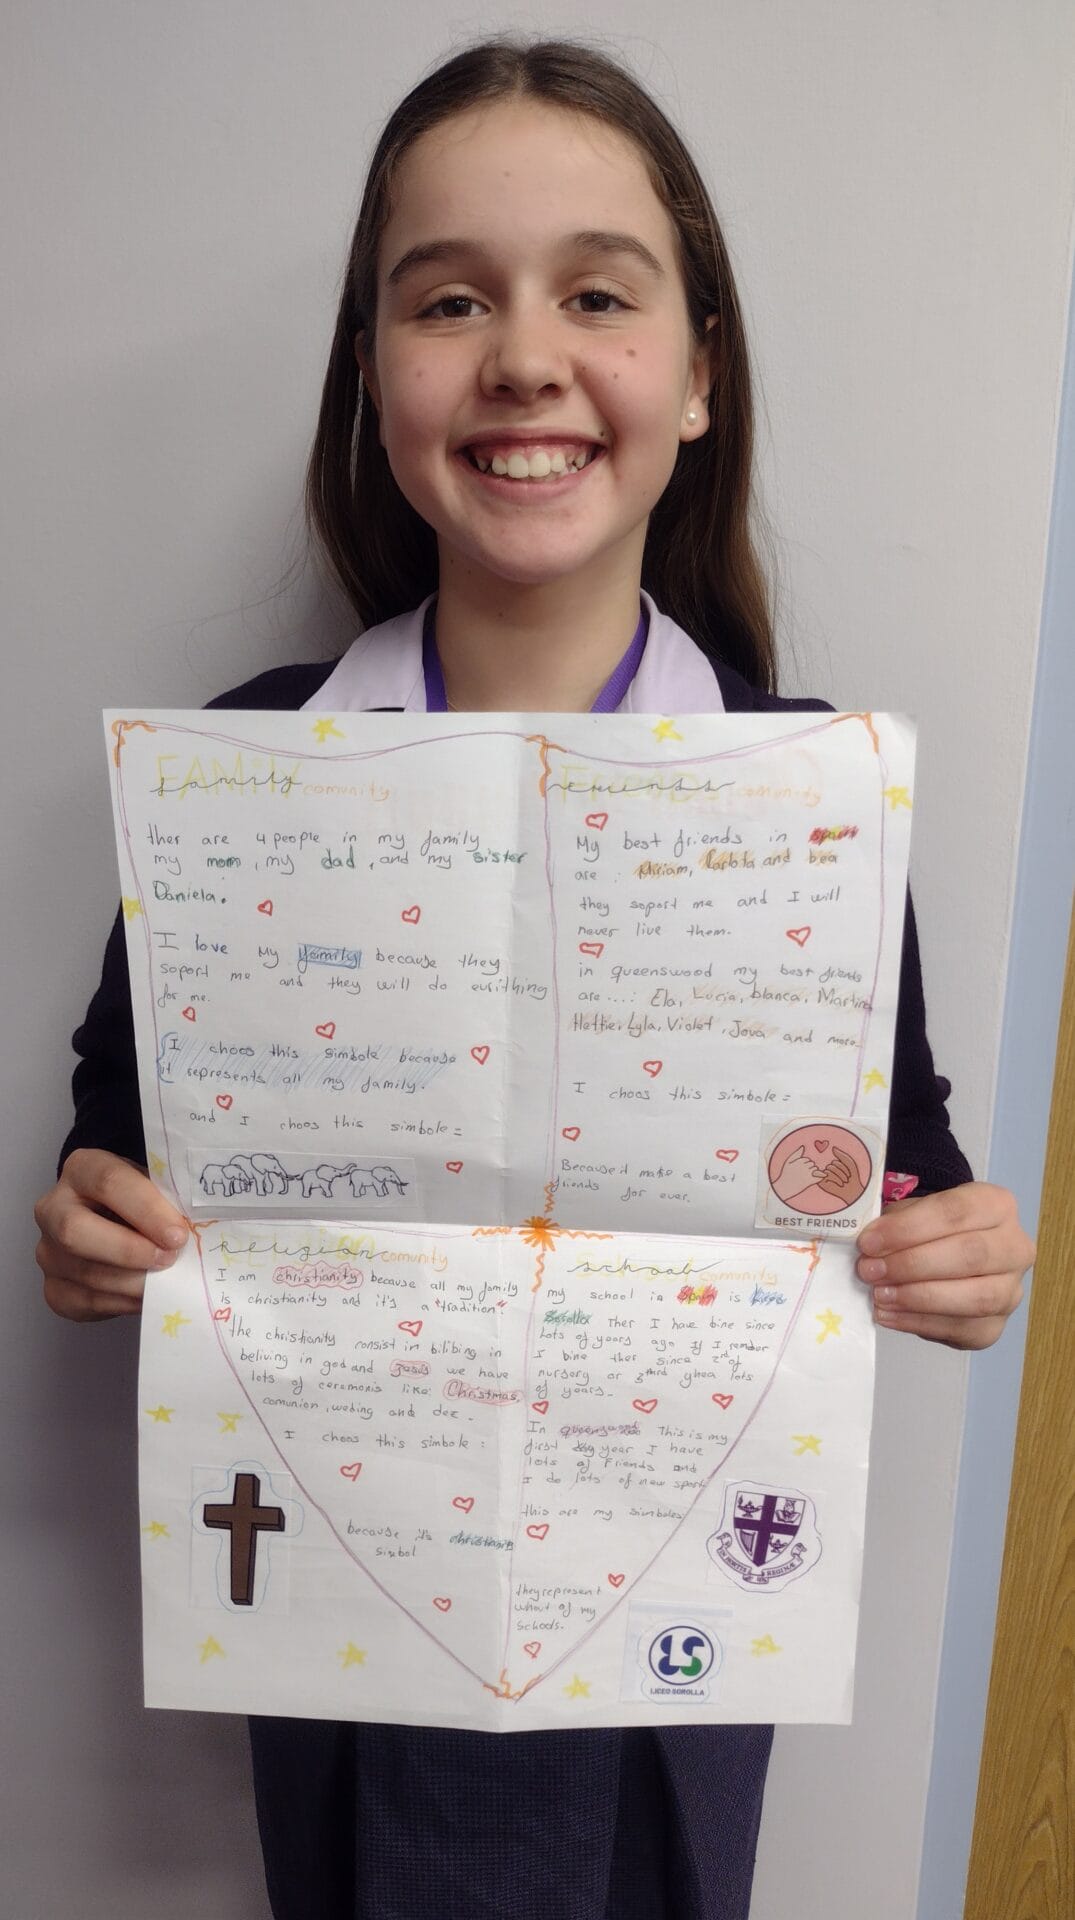 FAMILY family comunity
ther are 4 people in my family
my mom, my dad, and my sister
Daniela.
I love My family because they
soport me and they will do eurithing
for me.
I choos this simbole because
it represents all my family.
and I choos this simbole =
Friends comunity
My best friends in Spain
are : Miriam, Carlota and bea
they soport me and I will
never live them.
in queenswood my best friends
are ...: Ela, Lucia, blanca, Martina
Hettie, Lyla, Violet, Jova and more
I choos this simbole =
Because it make a best
friends for ever.
BEST FRIENDS
Religion comunity
I am christianity because all my family
is christianity and it's a "tradition".
the christianity consist in bilibing in
beliving in god and Jesus we have
lots of ceremonis like: Christmas,
comunion, weding and
I choos this simbole :
because it's christianity
simbol
School comunity
my school in Spain is liceo
Sorolla Ther I have bine since
lots of years ago If I remder
I bine ther since 2nd of
nursery or lots
of years.
In queenswood This is my
first year I have
lots of Friends and
I do lots of new sport
this are my simboles:
they represent
of my
schools.
IN HORTIS REGINÆ
LS
LICEO SOROLLA